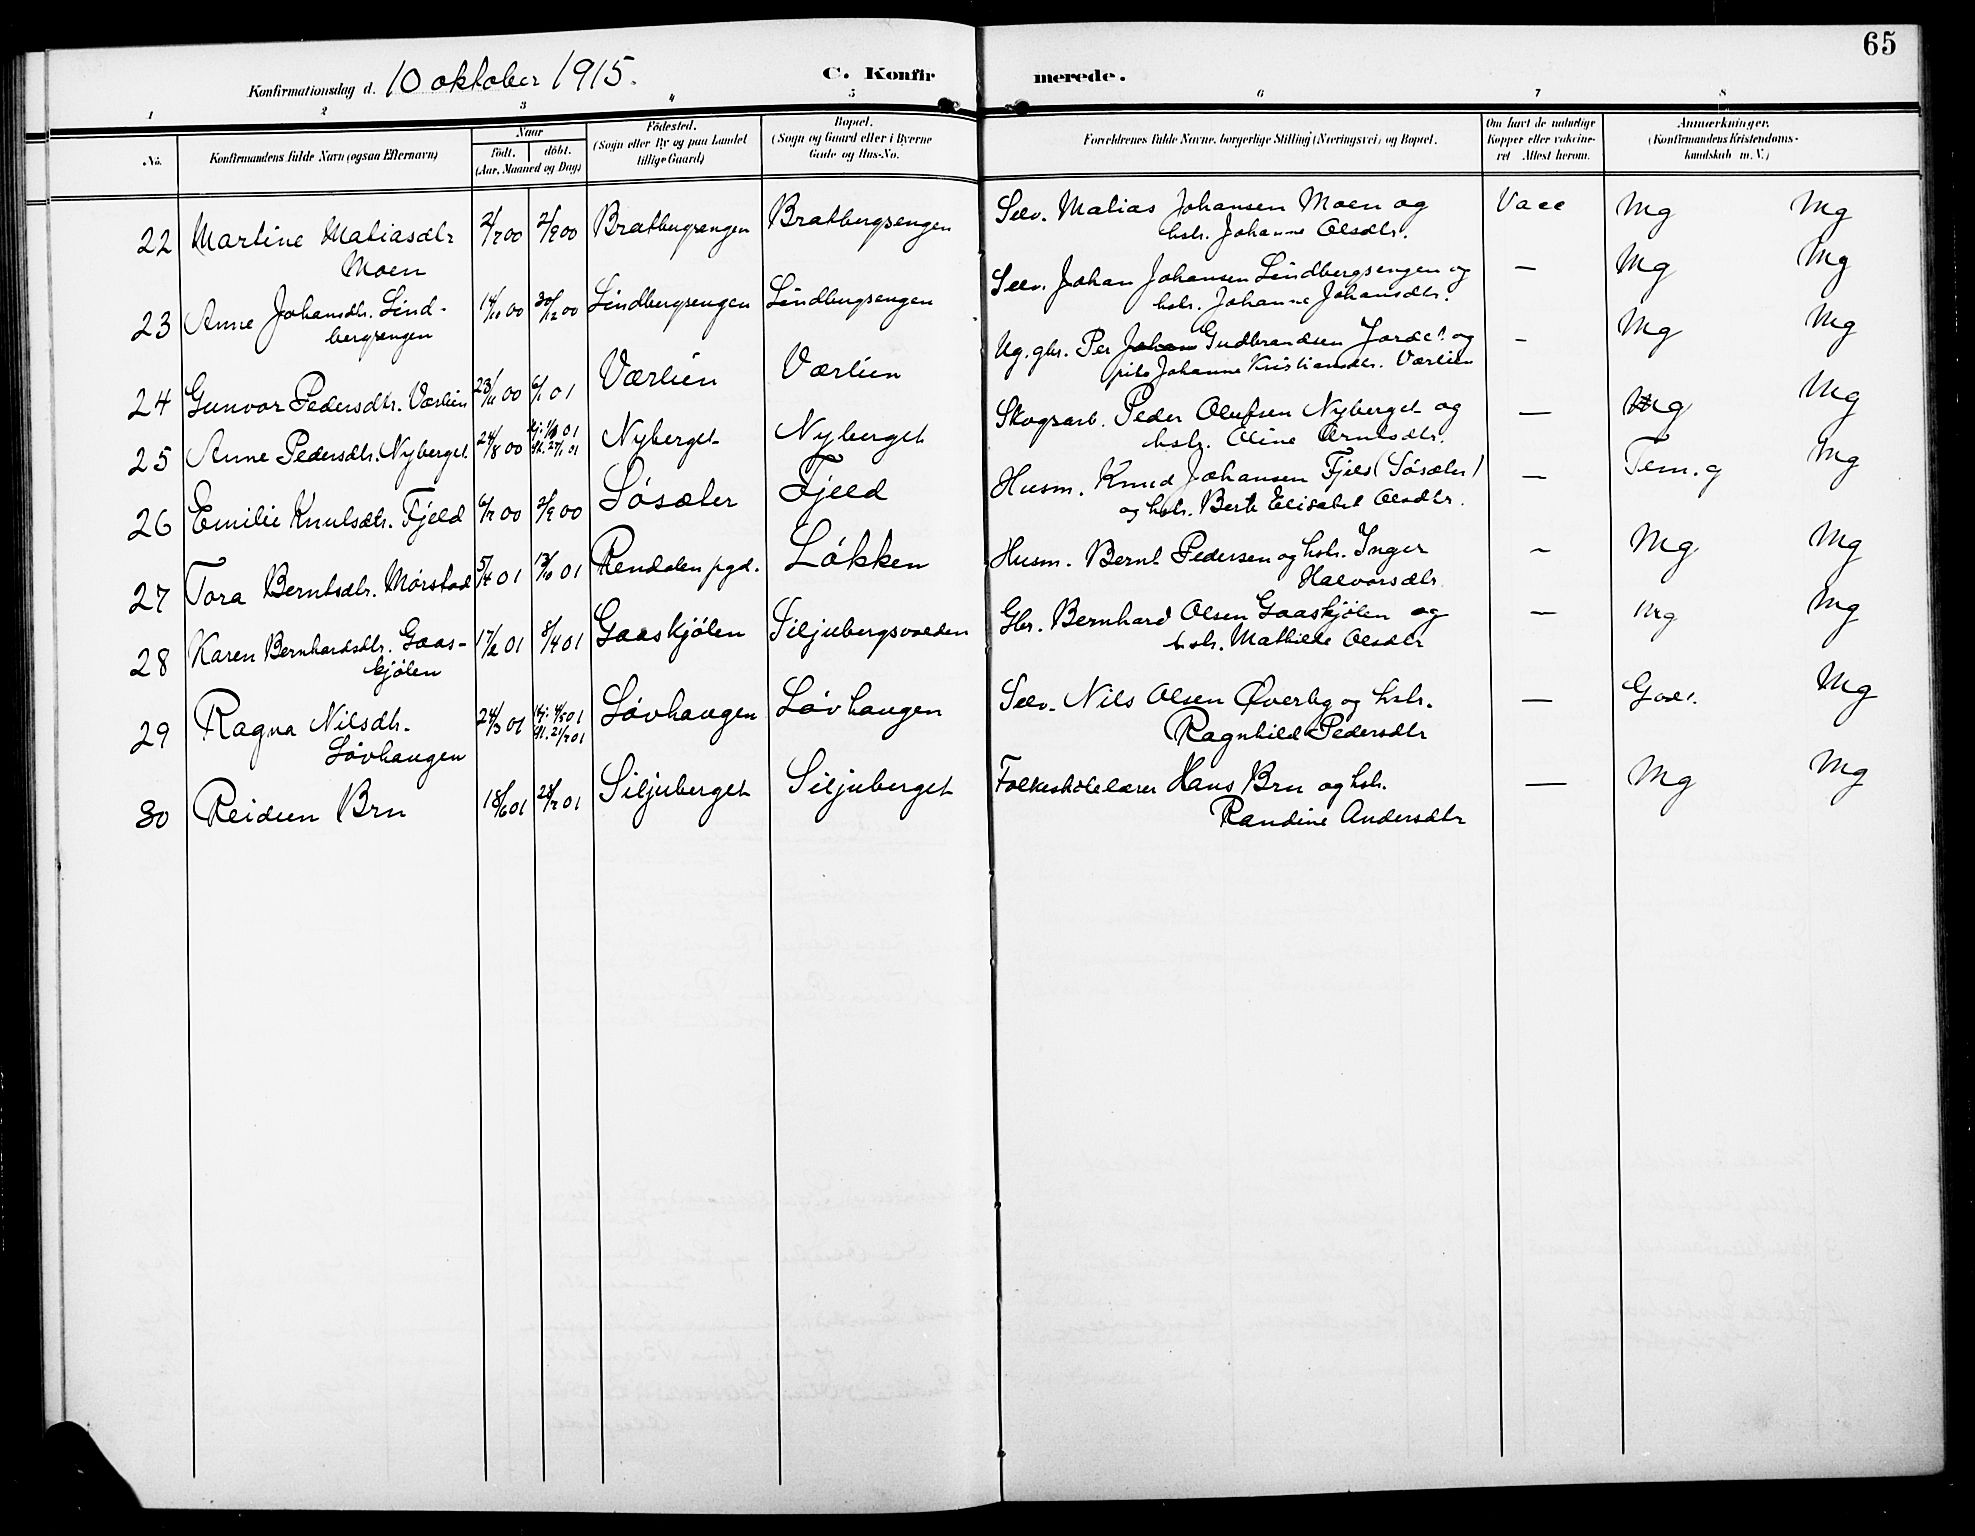 65
Konfirmationsdag d. 10 oktober 1915.
C. Konfirmerede.
1 2 3 4 5 6 7 8
No.
Konfirmandens fulde Navn (ogsaa Efternavn)
Naar
født. døbt.
(Aar, Maaned og Dag)
Fødested.
(Sogn eller By og paa Landet
tillige Gaard)
Bopæl.
(Sogn og Gaard eller i Byerne
Gade og Hus-No.
Forældrenes fulde Navne, borgerlige Stilling (Næringsvei) og Bopæl.
Om havt de naturlige
Kopper eller vakcine-
ret Attest herom.
Anmærkninger.
(Konfirmandens Kristendoms-
kundskab m. V.)
22 Martine Matiasdtr 2/7 00 2/9 00 Bratbergsengen Bratbergsengen Selv. Matias Johansen Moen og Vacc Mg Mg
Moen hstr. Johanne Olsdtr.
23 Anne Johansdtr. Lind- 14/10 00 30/12 00 Lindbergsengen Lindbergsengen Selv. Johan Johansen Lindbergsengen og — Mg Mg
bergsengen hstr. Johanne Johansdtr.
24 Gunvor Pedersdtr. Værlien 23/11 00 6/1 01 Værlien Værlien Ug. gbr. Per Johan Gudbrandsen Jordet og - Mg Mg
pike Johanne Kristiansdtr. Værlien
25 Anne Pedersdtr. Nyberget 24/8 00 27/1 01 Nyberget Nyberget Skogsarb. Peder Olufsen Nyberget og — Mg Mg
hstr. Oline Arntsdtr.
26 Emilie Knutsdtr. Fjeld 6/7 00 2/9 00 Løsæter Fjeld Husm. Knud Johansen Fjeld (Løsæter) — Tem. g Mg
og hstr. Berte Elisabet Olsdtr.
27 Tora Berntsdtr. Mørstad 5/4 01 13/10 01 Rendalen pgd. Løkken Husm. Bernt Pedersen og hstr. Inger - Mg Mg
Halvorsdtr
28 Karen Bernhardsdtr. Gaas- 17/2 01 8/4 01 Gaaskjølen Siljubergsvolden Gbr. Bernhard Olsen Gaaskjølen og — Mg Mg
kjølen hstr. Mathilde Olsdtr
29 Ragna Nilsdtr. 24/3 01 Hj: 4/5 01 Løvhaugen Løvhaugen Selv. Nils Olsen Øverby og hstr. — Godt. Mg
Løvhaugen St. 21/7 01 Ragnhild Pedersdtr
30 Reidun Bru 18/6 01 28/7 01 Siljuberget Siljuberget Folkeskolelærer Hans Bru og hstr. — Mg Mg
Randine Andersdtr